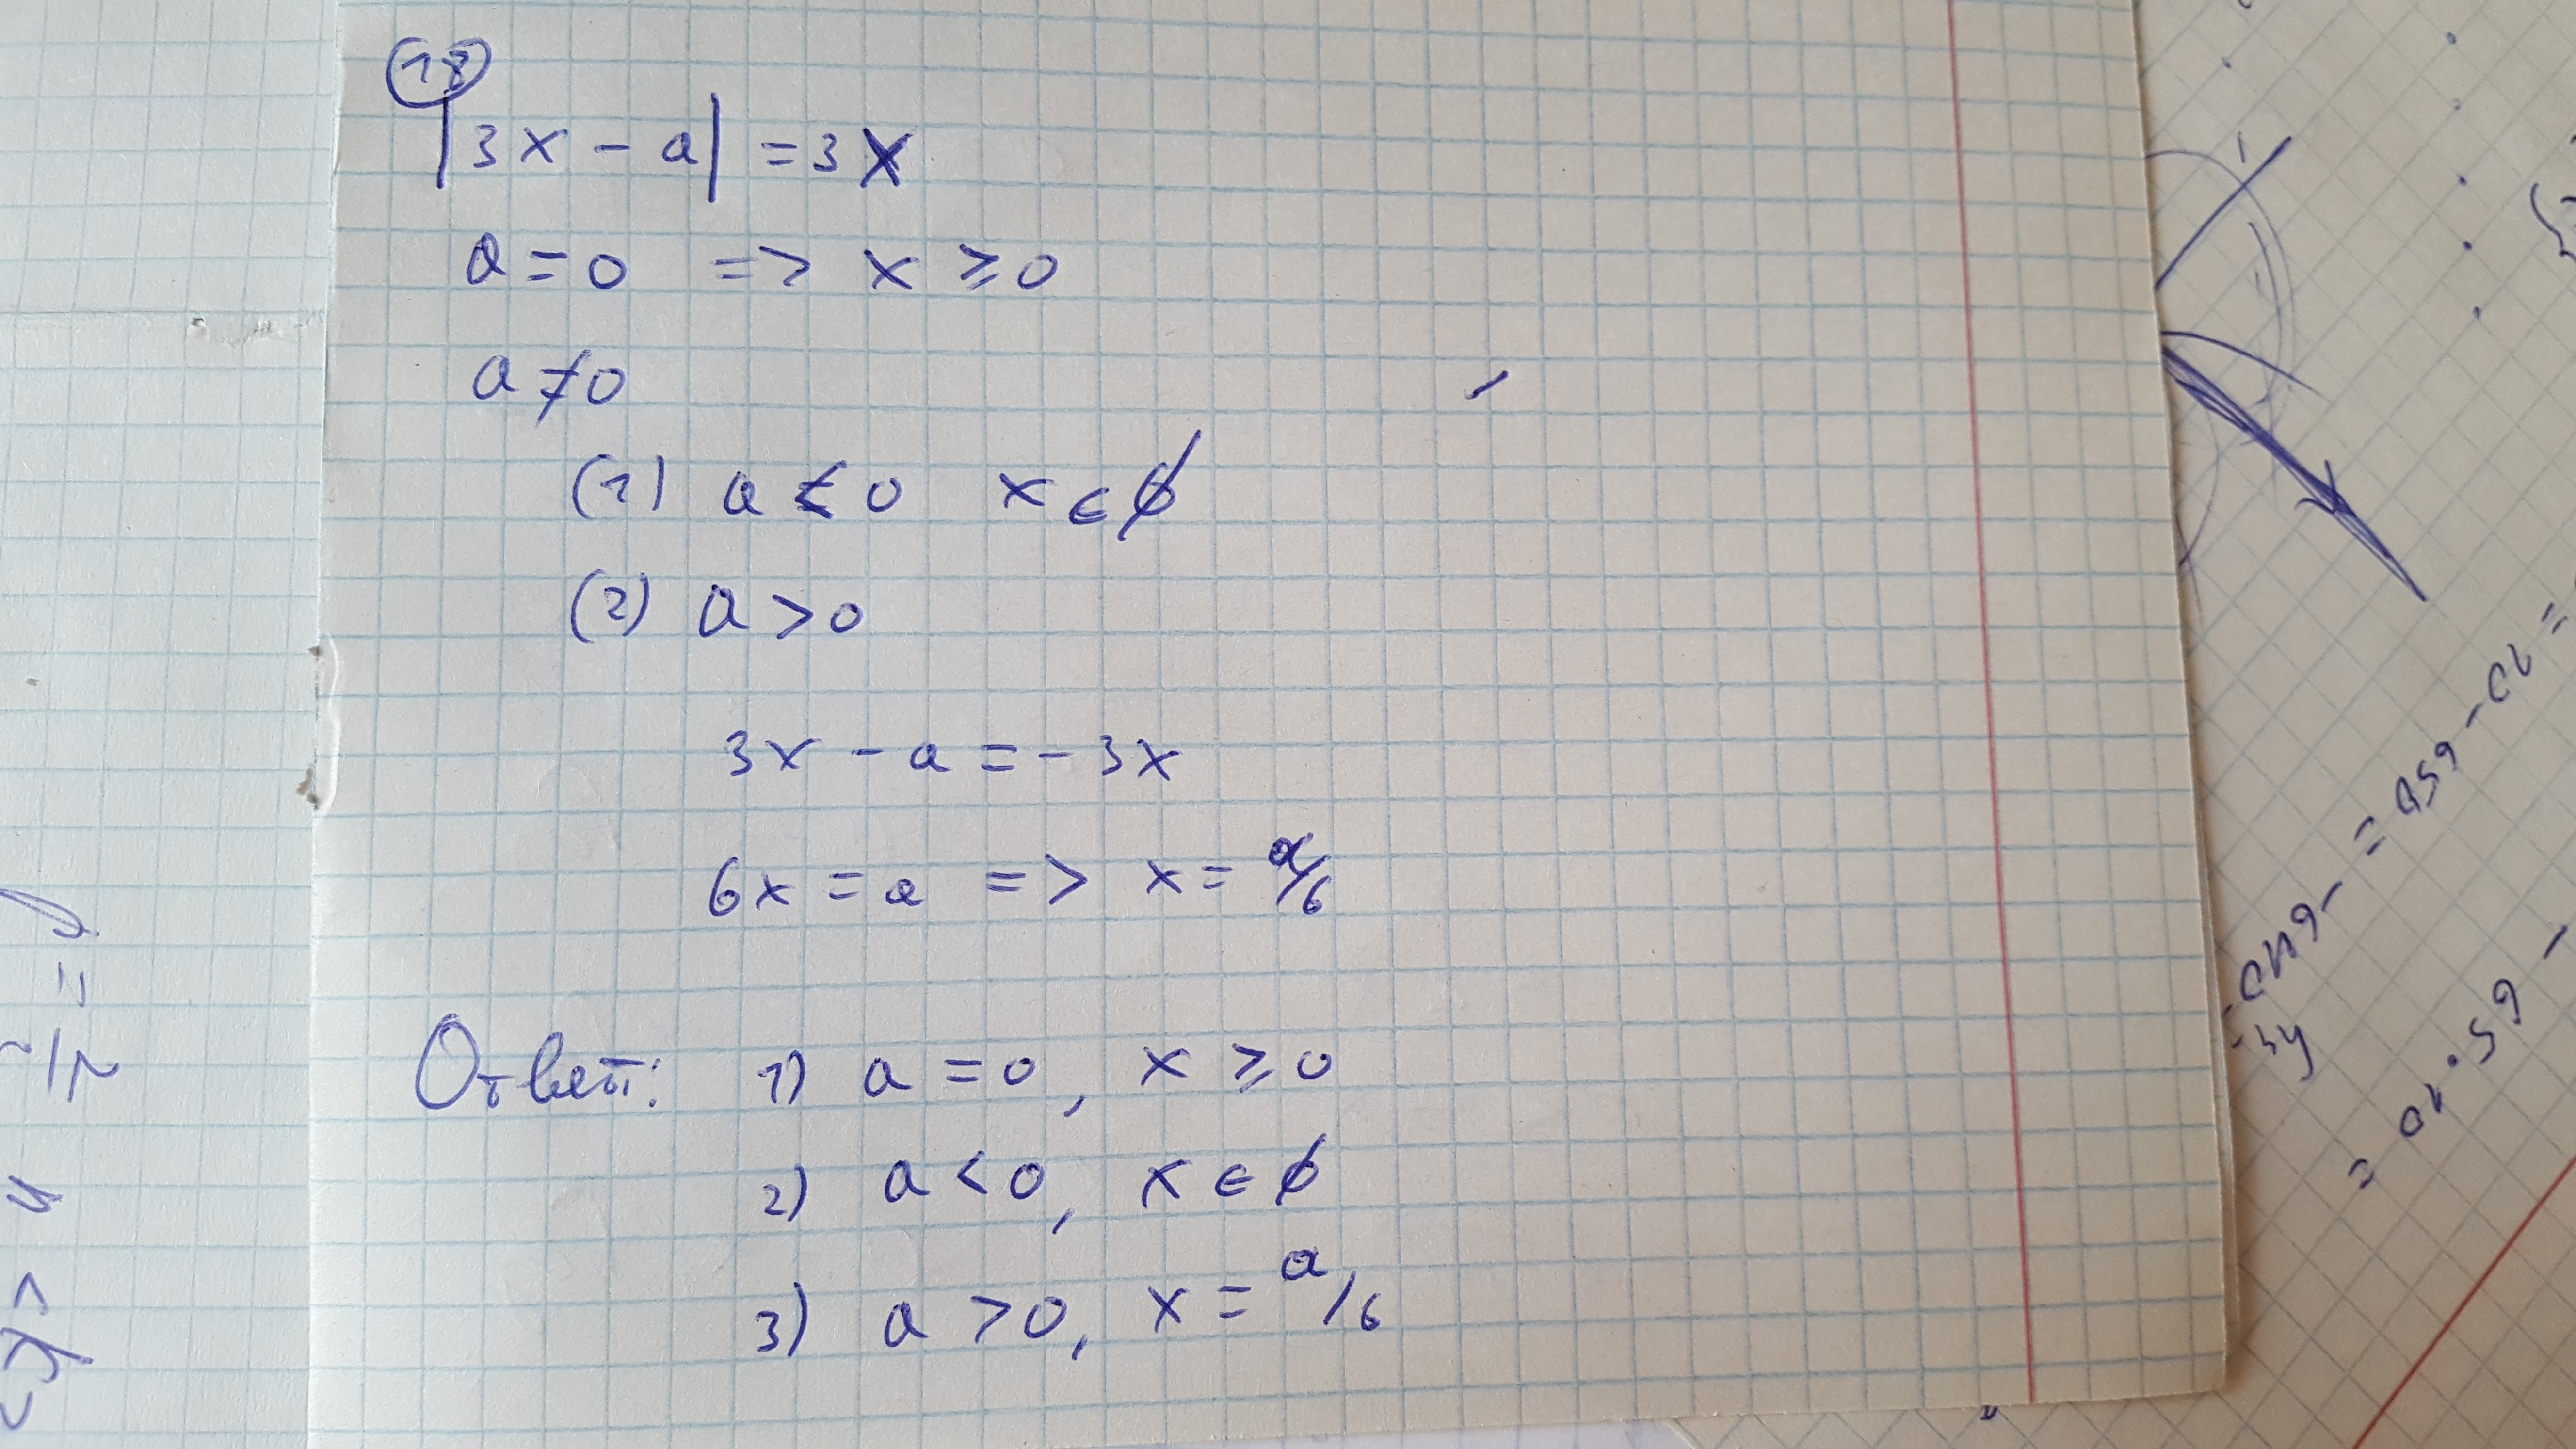 18
|3x - a| = 3x
a = 0 => x ≥ 0
a ≠ 0
(1) a < 0 x ∈ ∅
(2) a > 0
3x - a = - 3x
6x = a => x = a/6
Ответ: 1) a = 0, x ≥ 0
2) a < 0, x ∈ ∅
3) a > 0, x = a/6